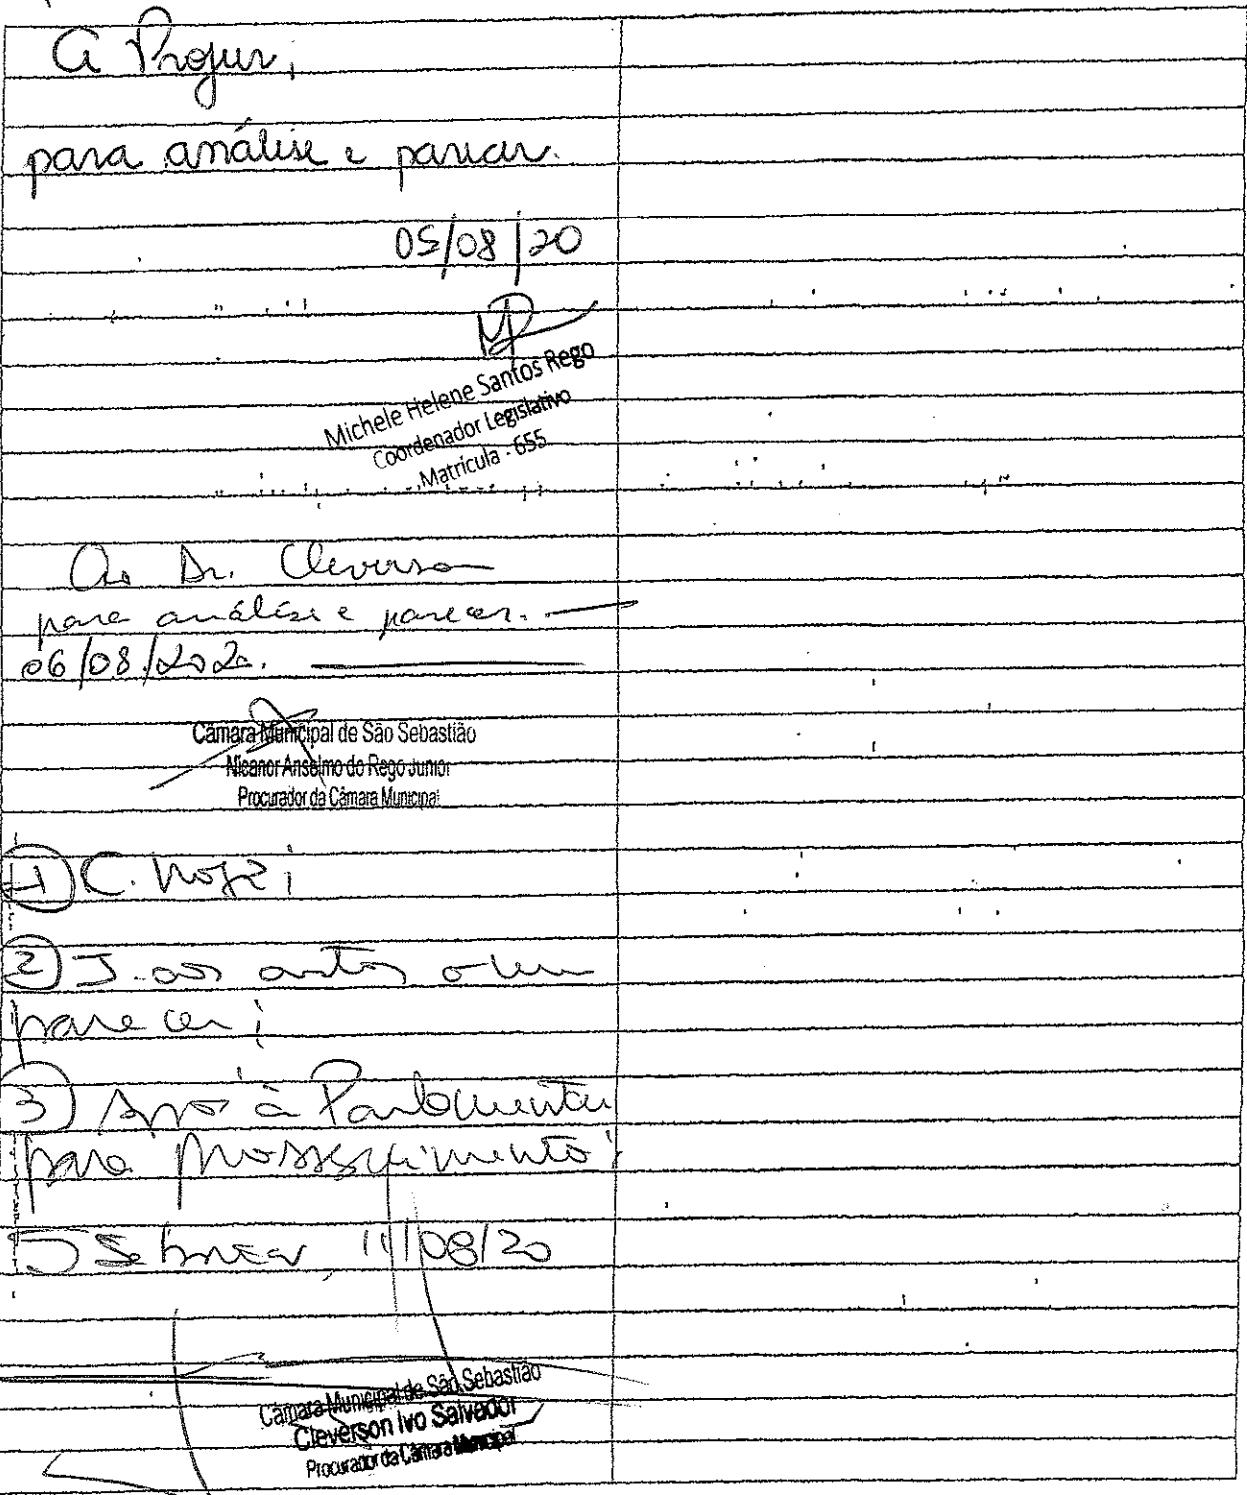 A Projur,
para análise e parecer.
05/08/20
Michele Helene Santos Rego
Coordenador Legislativo
Matrícula - 655
Ao Dr. Cleverson
para análise e parecer.
06/08/2020.
Câmara Municipal de São Sebastião
Nicanor Anselmo do Rego Junior
Procurador da Câmara Municipal
1) C. hoje;
2) J. aos autos o meu
parecer;
3) Após à Parlamentar
para prosseguimento;
11/08/20
Câmara Municipal de São Sebastião
Cleverson Ivo Salvador
Procurador da Câmara Municipal